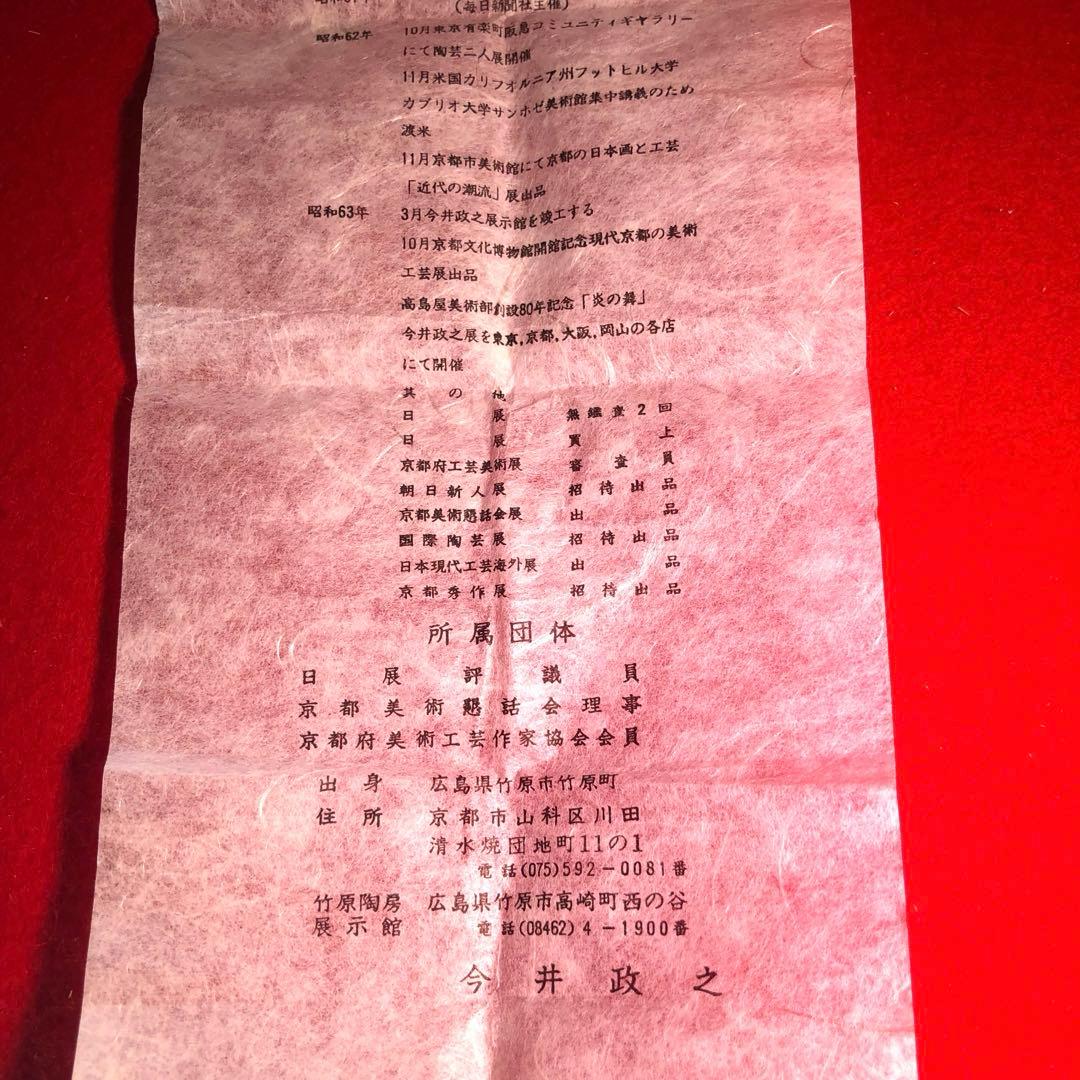 (毎日新聞社主催)
昭和62年 10月東京有楽町阪急コミュニティギャラリー
にて陶芸二人展開催
11月米国カリフォルニア州フットヒル大学
カブリオ大学サンホゼ美術館集中講義のため
渡米
11月京都市美術館にて京都の日本画と工芸
「近代の潮流」展出品
昭和63年 3月今井政之展示館を竣工する
10月京都文化博物館開館記念現代京都の美術
工芸展出品
高島屋美術部創設80年記念「炎の舞」
今井政之展を東京,京都,大阪,岡山の各店
にて開催
其の他
日展 無鑑査2回
日展 買上
京都府工芸美術展 審査員
朝日新人展 招待出品
京都美術懇話会展 出品
国際陶芸展 招待出品
日本現代工芸海外展 出品
京都秀作展 招待出品
所属団体
日展評議員
京都美術懇話会理事
京都府美術工芸作家協会会員
出身 広島県竹原市竹原町
住所 京都市山科区川田
清水焼団地町11の1
電話(075)592-0081番
竹原陶房 広島県竹原市高崎町西の谷
展示館 電話(08462)4-1900番
今井政之